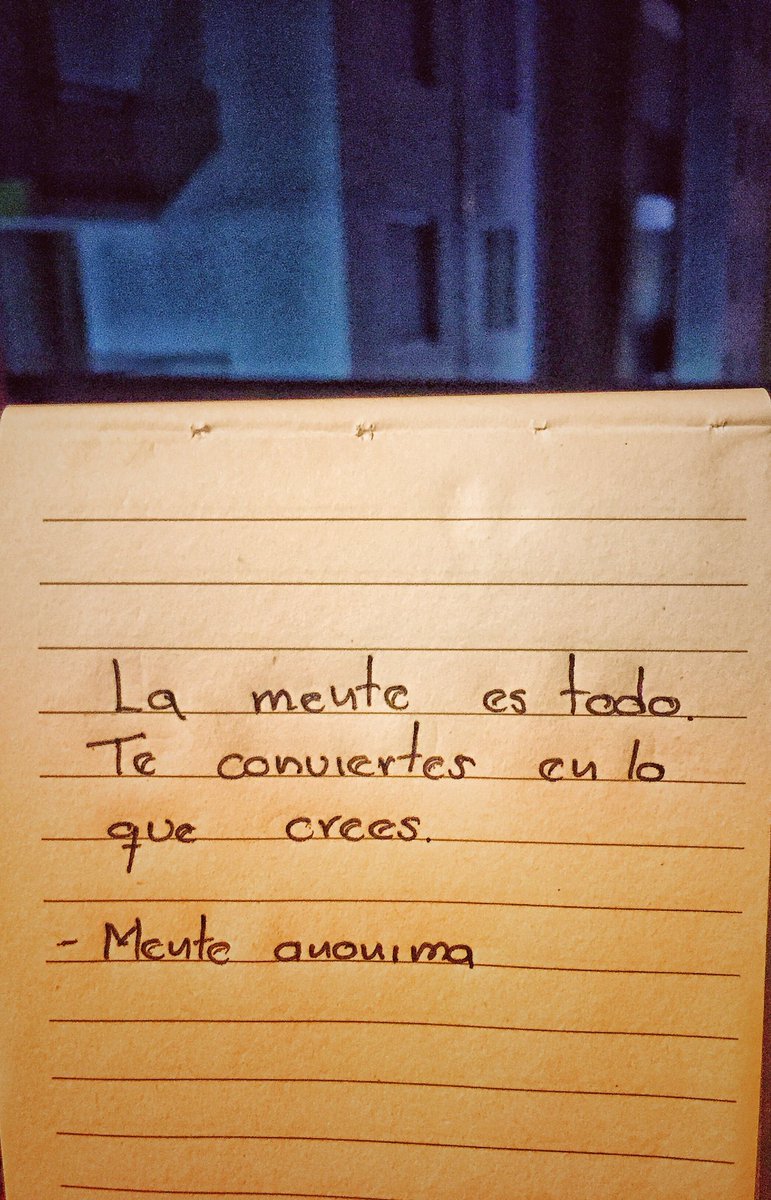 La mente es todo.
Te conviertes en lo
que crees.
- Mente anonima